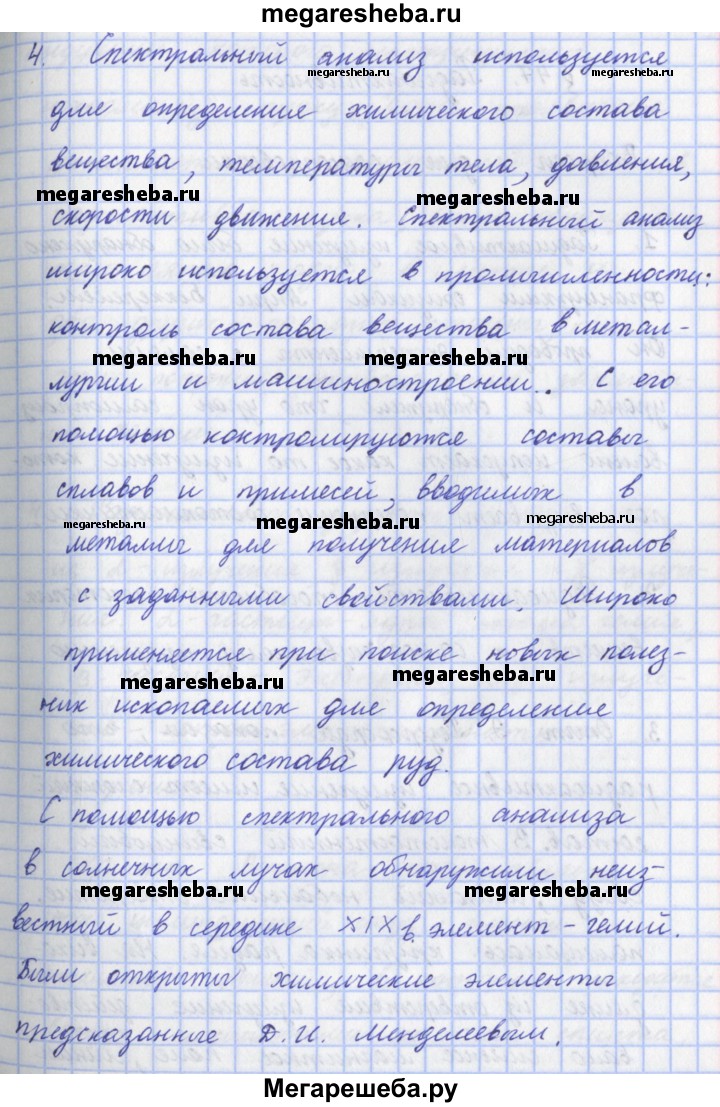 megaresheba.ru
4. Спектральный анализ используется
megaresheba.ru megaresheba.ru
для определения химического состава
вещества, температуры тела, давления,
megaresheba.ru megaresheba.ru
скорости движения. Спектральный анализ
широко используется в промичисленности:
контроль состава вещества в метал-
megaresheba.ru megaresheba.ru
лургии и машиностроении. С его
помощью контролируются составы
сплавов и примесей, вводимых в
megaresheba.ru megaresheba.ru megaresheba.ru
металлы для получения материалов
с заданными свойствами. Широко
применяется при поиске новых полез-
megaresheba.ru megaresheba.ru
ных ископаемых для определение
химического состава руд.
С помощью спектрального анализа
в солнечных лучах обнаружили неиз-
megaresheba.ru megaresheba.ru
вестный в середине XIX в. элемент - гелий.
Были открыты химические элементы
предсказанные Д. И. Менделеевым.
Мегарешеба.ру